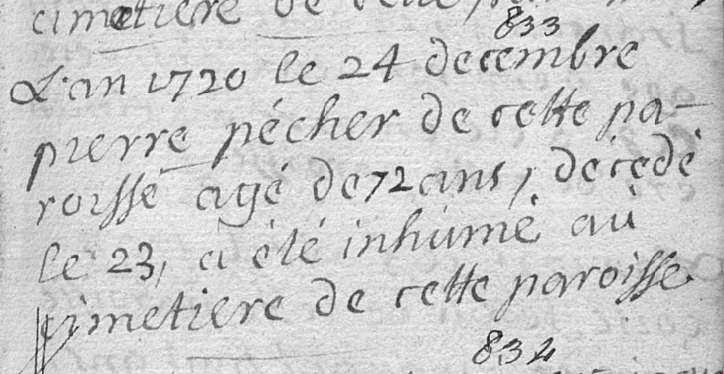 cimetiere de cette
833
L'an 1720 le 24 decembre
pierre pécher de cette pa-
roisse agé de 72 ans, décedé
le 23, a été inhumé au
cimetiere de cette paroisse.
834